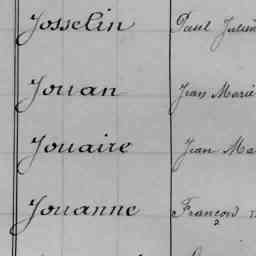 Josselin Paul Julien
Jouan Jean Marie
Jouaire Jean Ma
Jouanne François